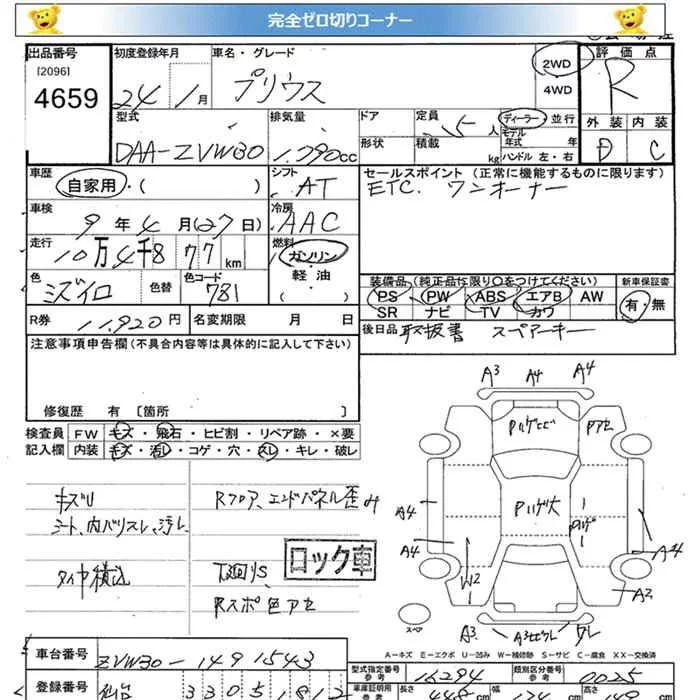 完全ゼロ切りコーナー
出品番号 初度登録年月 車名・グレード 評価点
[2096]
4659 24年1月 プリウス 2WD 4WD R
型式 排気量 ドア 定員 ディーラー・並行 外装 内装
DAA-ZVW30 1.790cc 5人 モデル年式 年 D C
形状 積載 kg ハンドル 左・右
車歴 シフト セールスポイント(正常に機能するものに限ります)
自家用・( ) AT ETC. ワンオーナー
車検 冷房
9年4月(27日) AAC
走行 燃料
10万4千877km ガソリン
色 色替 色コード 軽油 装備品(純正品に限り○をつけてください) 新車保証書
ミズイロ 781 ( ) PS PW ABS エアB AW 有・無
SR ナビ TV カワ
R券 11,920円 名変期限 月 日 後日品 取扱書 スペアーキー
注意事項申告欄(不具合内容等は具体的に記入して下さい)
修復歴 有 [箇所 ]
検査員 FW キズ・飛石・ヒビ割・リペア跡・×要
記入欄 内装 キズ・汚レ・コゲ・穴・スレ・キレ・破レ
A3 A4 A4
Pハゲヒビ Pアセ
キズU Rフロア、エンドパネル歪み
シート、内バリスレ、汚レ
Pハゲ大 Pハゲ
A4 A4 A4
ロック車
タイヤ積込 下廻りS W2 A2
Rスポ色アセ
スペア A3 ワレ
A−キズ E−エクボ U−凹み W−補修跡 S−サビ C−腐食 XX−交換済
車台番号 ZVW30-1491543
型式指定番号 参考 16294 類別区分番号 参考 0025
登録番号 仙台 330 5 1812
車庫証明用 参考 長さ 448 cm